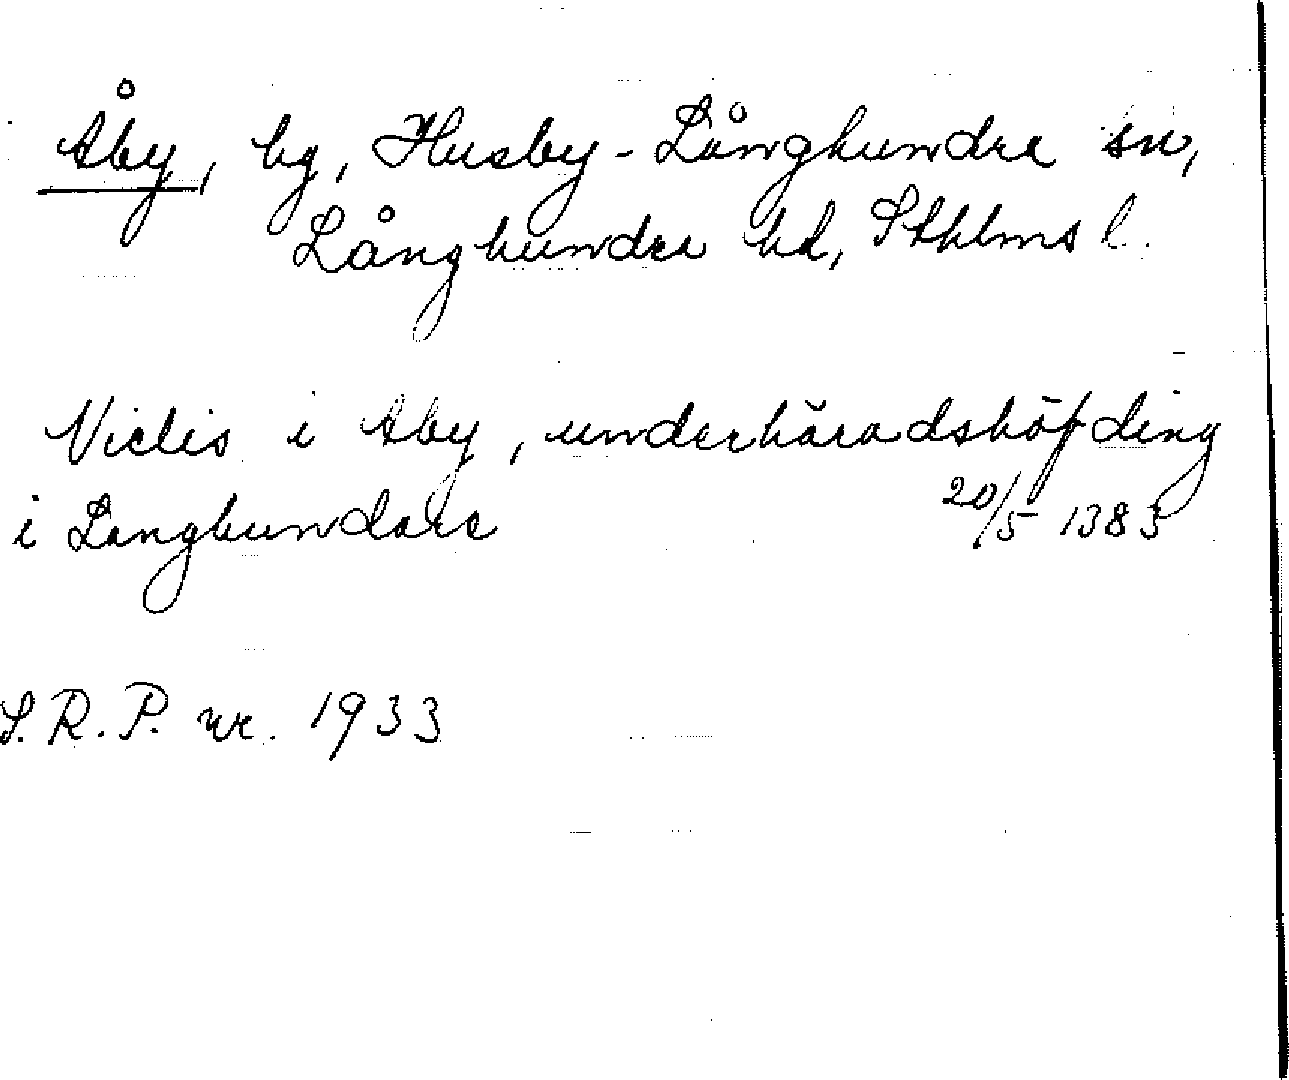 Åby, bg, Husby-Långhundra sn,
Långhundra hd, Sthlms l.
i Aby, underhäradshöfding
i Langhundare 20/5 1383
S.R.P. nr. 1933